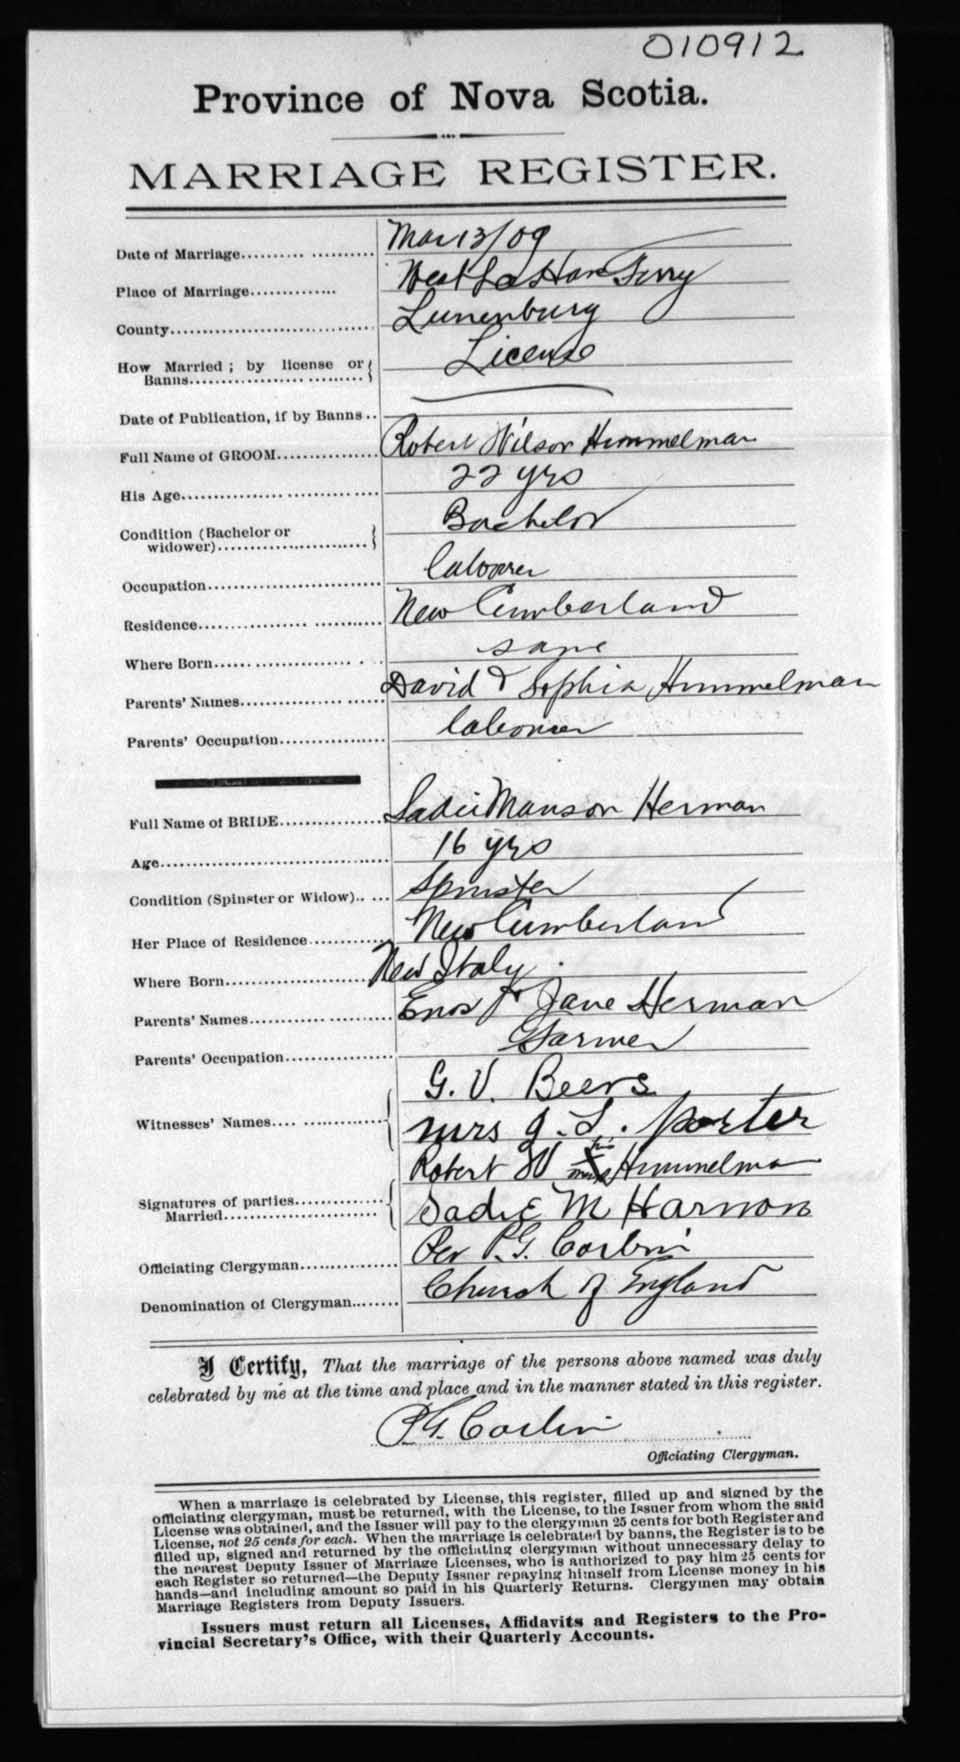 010912
Province of Nova Scotia.
MARRIAGE REGISTER.
Date of Marriage Mar 13/09
Place of Marriage West LaHave Ferry
County Lunenburg
How Married; by license or
Banns License
Date of Publication, if by Banns
Full Name of GROOM Robert Wilson Himmelman
His Age 22 yrs
Condition (Bachelor or
widower) Bachelor
Occupation laborer
Residence New Cumberland
Where Born same
Parents' Names David & Sophia Himmelman
Parents' Occupation laborer
Full Name of BRIDE Sadie Manson Herman
Age 16 yrs
Condition (Spinster or Widow) Spinster
Her Place of Residence New Cumberland
Where Born New Italy
Parents' Names Enos & Jane Herman
Parents' Occupation Farmer
G. V. Beers
Witnesses' Names Mrs J. L. Porter
Robert W his X mark Himmelman
Signatures of parties
Married Sadie M Harmon
Officiating Clergyman Rev P. G. Corbin
Denomination of Clergyman Church of England
I Certify, That the marriage of the persons above named was duly
celebrated by me at the time and place and in the manner stated in this register.
P.G. Corbin
Officiating Clergyman.
When a marriage is celebrated by License, this register, filled up and signed by the
officiating clergyman, must be returned, with the License, to the Issuer from whom the said
License was obtained, and the Issuer will pay to the clergyman 25 cents for both Register and
License, not 25 cents for each. When the marriage is celebrated by banns, the Register is to be
filled up, signed and returned by the officiating clergyman without unnecessary delay to
the nearest Deputy Issuer of Marriage Licenses, who is authorized to pay him 25 cents for
each Register so returned—the Deputy Issuer repaying himself from License money in his
hands—and including amount so paid in his Quarterly Returns. Clergymen may obtain
Marriage Registers from Deputy Issuers.
Issuers must return all Licenses, Affidavits and Registers to the Pro-
vincial Secretary's Office, with their Quarterly Accounts.